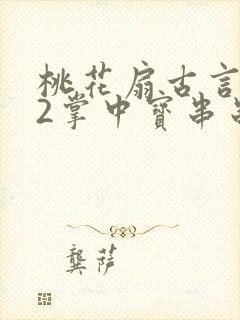 桃花扇古言
2掌中寶串
龔萨